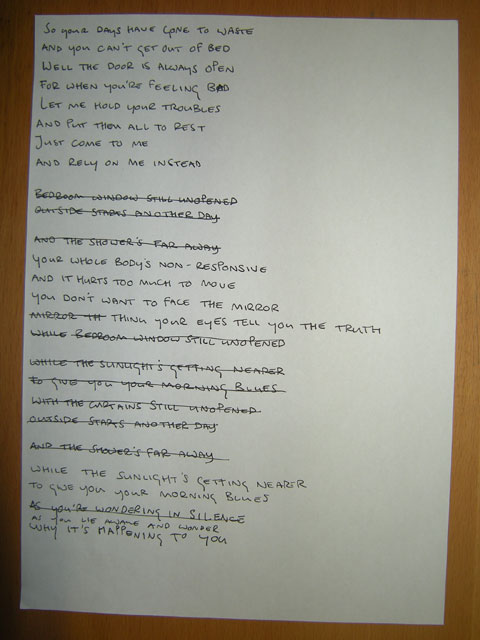 So your days have gone to waste
and you can't get out of bed
Well the door is always open
for when you're feeling bad
Let me hold your troubles
and put them all to rest
Just come to me
and rely on me instead
Bedroom window still unopened
outside starts another day
and the shower's far away
your whole body's non-responsive
and it hurts too much to move
you don't want to face the mirror
mirror th think your eyes tell you the truth
while bedroom window still unopened
while the sunlight's getting nearer
to give you your morning blues
with the curtains still unopened
outside starts another day
and the shower's far away
while the sunlight's getting nearer
to give you your morning blues
as you're wondering in silence
as you lie awake and wonder
why it's happening to you